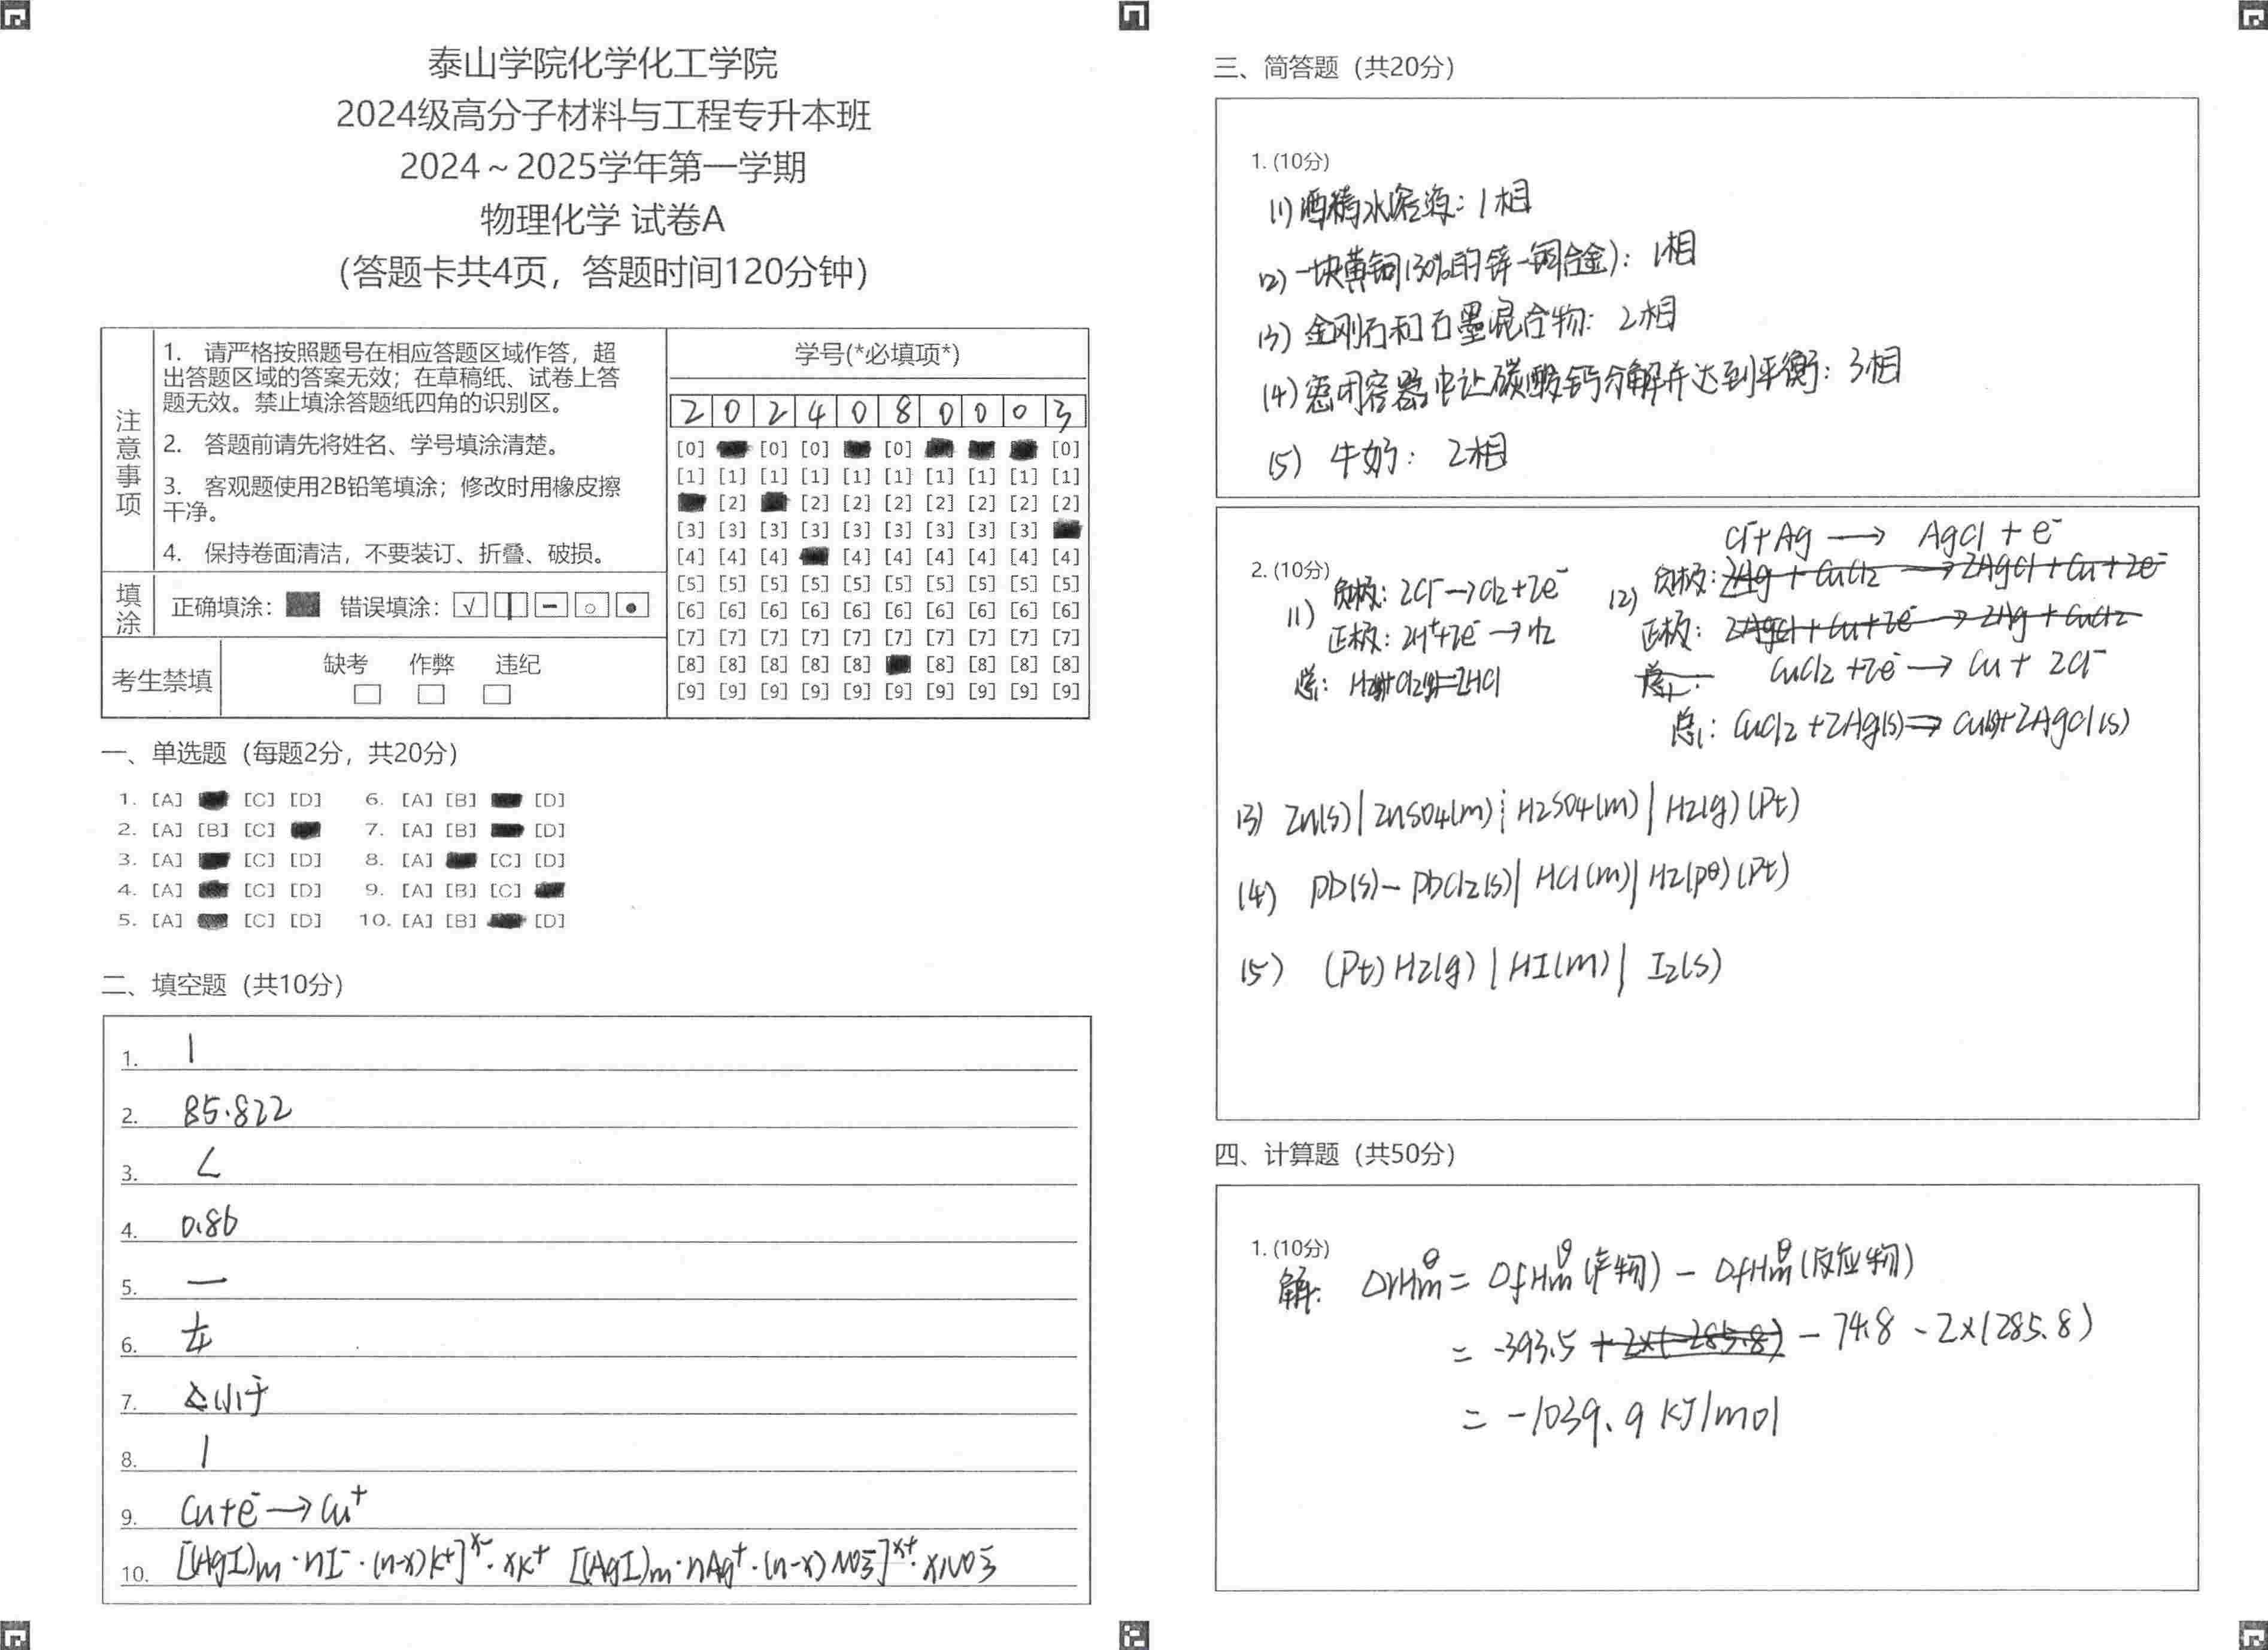 泰山学院化学化工学院
2024级高分子材料与工程专升本班
2024～2025学年第一学期
物理化学 试卷A
（答题卡共4页，答题时间120分钟）
注意事项
1. 请严格按照题号在相应答题区域作答，超
出答题区域的答案无效；在草稿纸、试卷上答
题无效。禁止填涂答题纸四角的识别区。
2. 答题前请先将姓名、学号填涂清楚。
3. 客观题使用2B铅笔填涂；修改时用橡皮擦
干净。
4. 保持卷面清洁，不要装订、折叠、破损。
填涂
正确填涂： 错误填涂：
考生禁填
缺考 作弊 违纪
学号(*必填项*)
2 0 2 4 0 8 0 0 0 3
[0] [0] [0] [0] [0]
[1] [1] [1] [1] [1] [1] [1] [1] [1] [1]
[2] [2] [2] [2] [2] [2] [2] [2]
[3] [3] [3] [3] [3] [3] [3] [3] [3]
[4] [4] [4] [4] [4] [4] [4] [4] [4]
[5] [5] [5] [5] [5] [5] [5] [5] [5] [5]
[6] [6] [6] [6] [6] [6] [6] [6] [6] [6]
[7] [7] [7] [7] [7] [7] [7] [7] [7] [7]
[8] [8] [8] [8] [8] [8] [8] [8] [8]
[9] [9] [9] [9] [9] [9] [9] [9] [9] [9]
一、单选题（每题2分，共20分）
1. [A] [C] [D] 6. [A] [B] [D]
2. [A] [B] [C] 7. [A] [B] [D]
3. [A] [C] [D] 8. [A] [C] [D]
4. [A] [C] [D] 9. [A] [B] [C]
5. [A] [C] [D] 10. [A] [B] [D]
二、填空题（共10分）
1. 1
2. 85.822
3. <
4. 0.86
5. 一
6. 左
7. 小于
8. 1
9. Cu+e⁻→Cu⁺
10. [(AgI)m·nI⁻·(n-x)K⁺]ˣ⁻·xK⁺ [(AgI)m·nAg⁺·(n-x)NO₃⁻]ˣ⁺·xNO₃⁻
三、简答题（共20分）
1. (10分)
(1) 酒精水溶液：1相
(2) 一块黄铜(30%的锌-铜合金)：1相
(3) 金刚石和石墨混合物：2相
(4) 密闭容器中让碳酸钙分解并达到平衡：3相
(5) 牛奶：2相
2. (10分)
(1) 负极：2Cl⁻→Cl₂+2e⁻
正极：2H⁺+2e⁻→H₂
总：H₂(g)+Cl₂(g)=2HCl
Cl⁻+Ag → AgCl + e⁻
(2) 负极：2Ag + CuCl₂ → 2AgCl + Cu + 2e⁻
正极：2AgCl + Cu + 2e⁻ → 2Ag + CuCl₂
总： CuCl₂ + 2e⁻ → Cu + 2Cl⁻
总：CuCl₂ + 2Ag(s) ⇒ Cu(s)+2AgCl(s)
(3) Zn(s)|ZnSO₄(m)┆H₂SO₄(m)|H₂(g)(Pt)
(4) Pb(s)-PbCl₂(s)|HCl(m)|H₂(pθ)(Pt)
(5) (Pt)H₂(g)|HI(m)|I₂(s)
四、计算题（共50分）
1. (10分)
解： ΔrHmθ = ΔfHmθ(产物) - ΔfHmθ(反应物)
= -393.5 +2×(-285.8) - 74.8 - 2×(285.8)
= -1039.9 KJ/mol